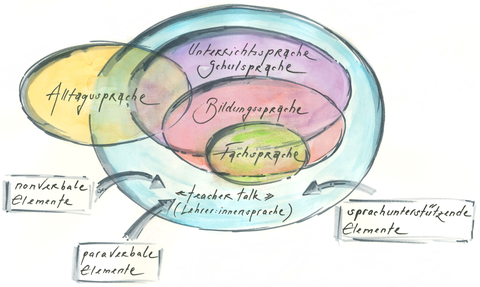 Unterrichtssprache
Schulsprache
Alltagssprache
Bildungssprache
Fachsprache
nonverbale
Elemente
«teacher talk»
(Lehrer:innensprache)
sprachunterstützende
Elemente
paraverbale
Elemente